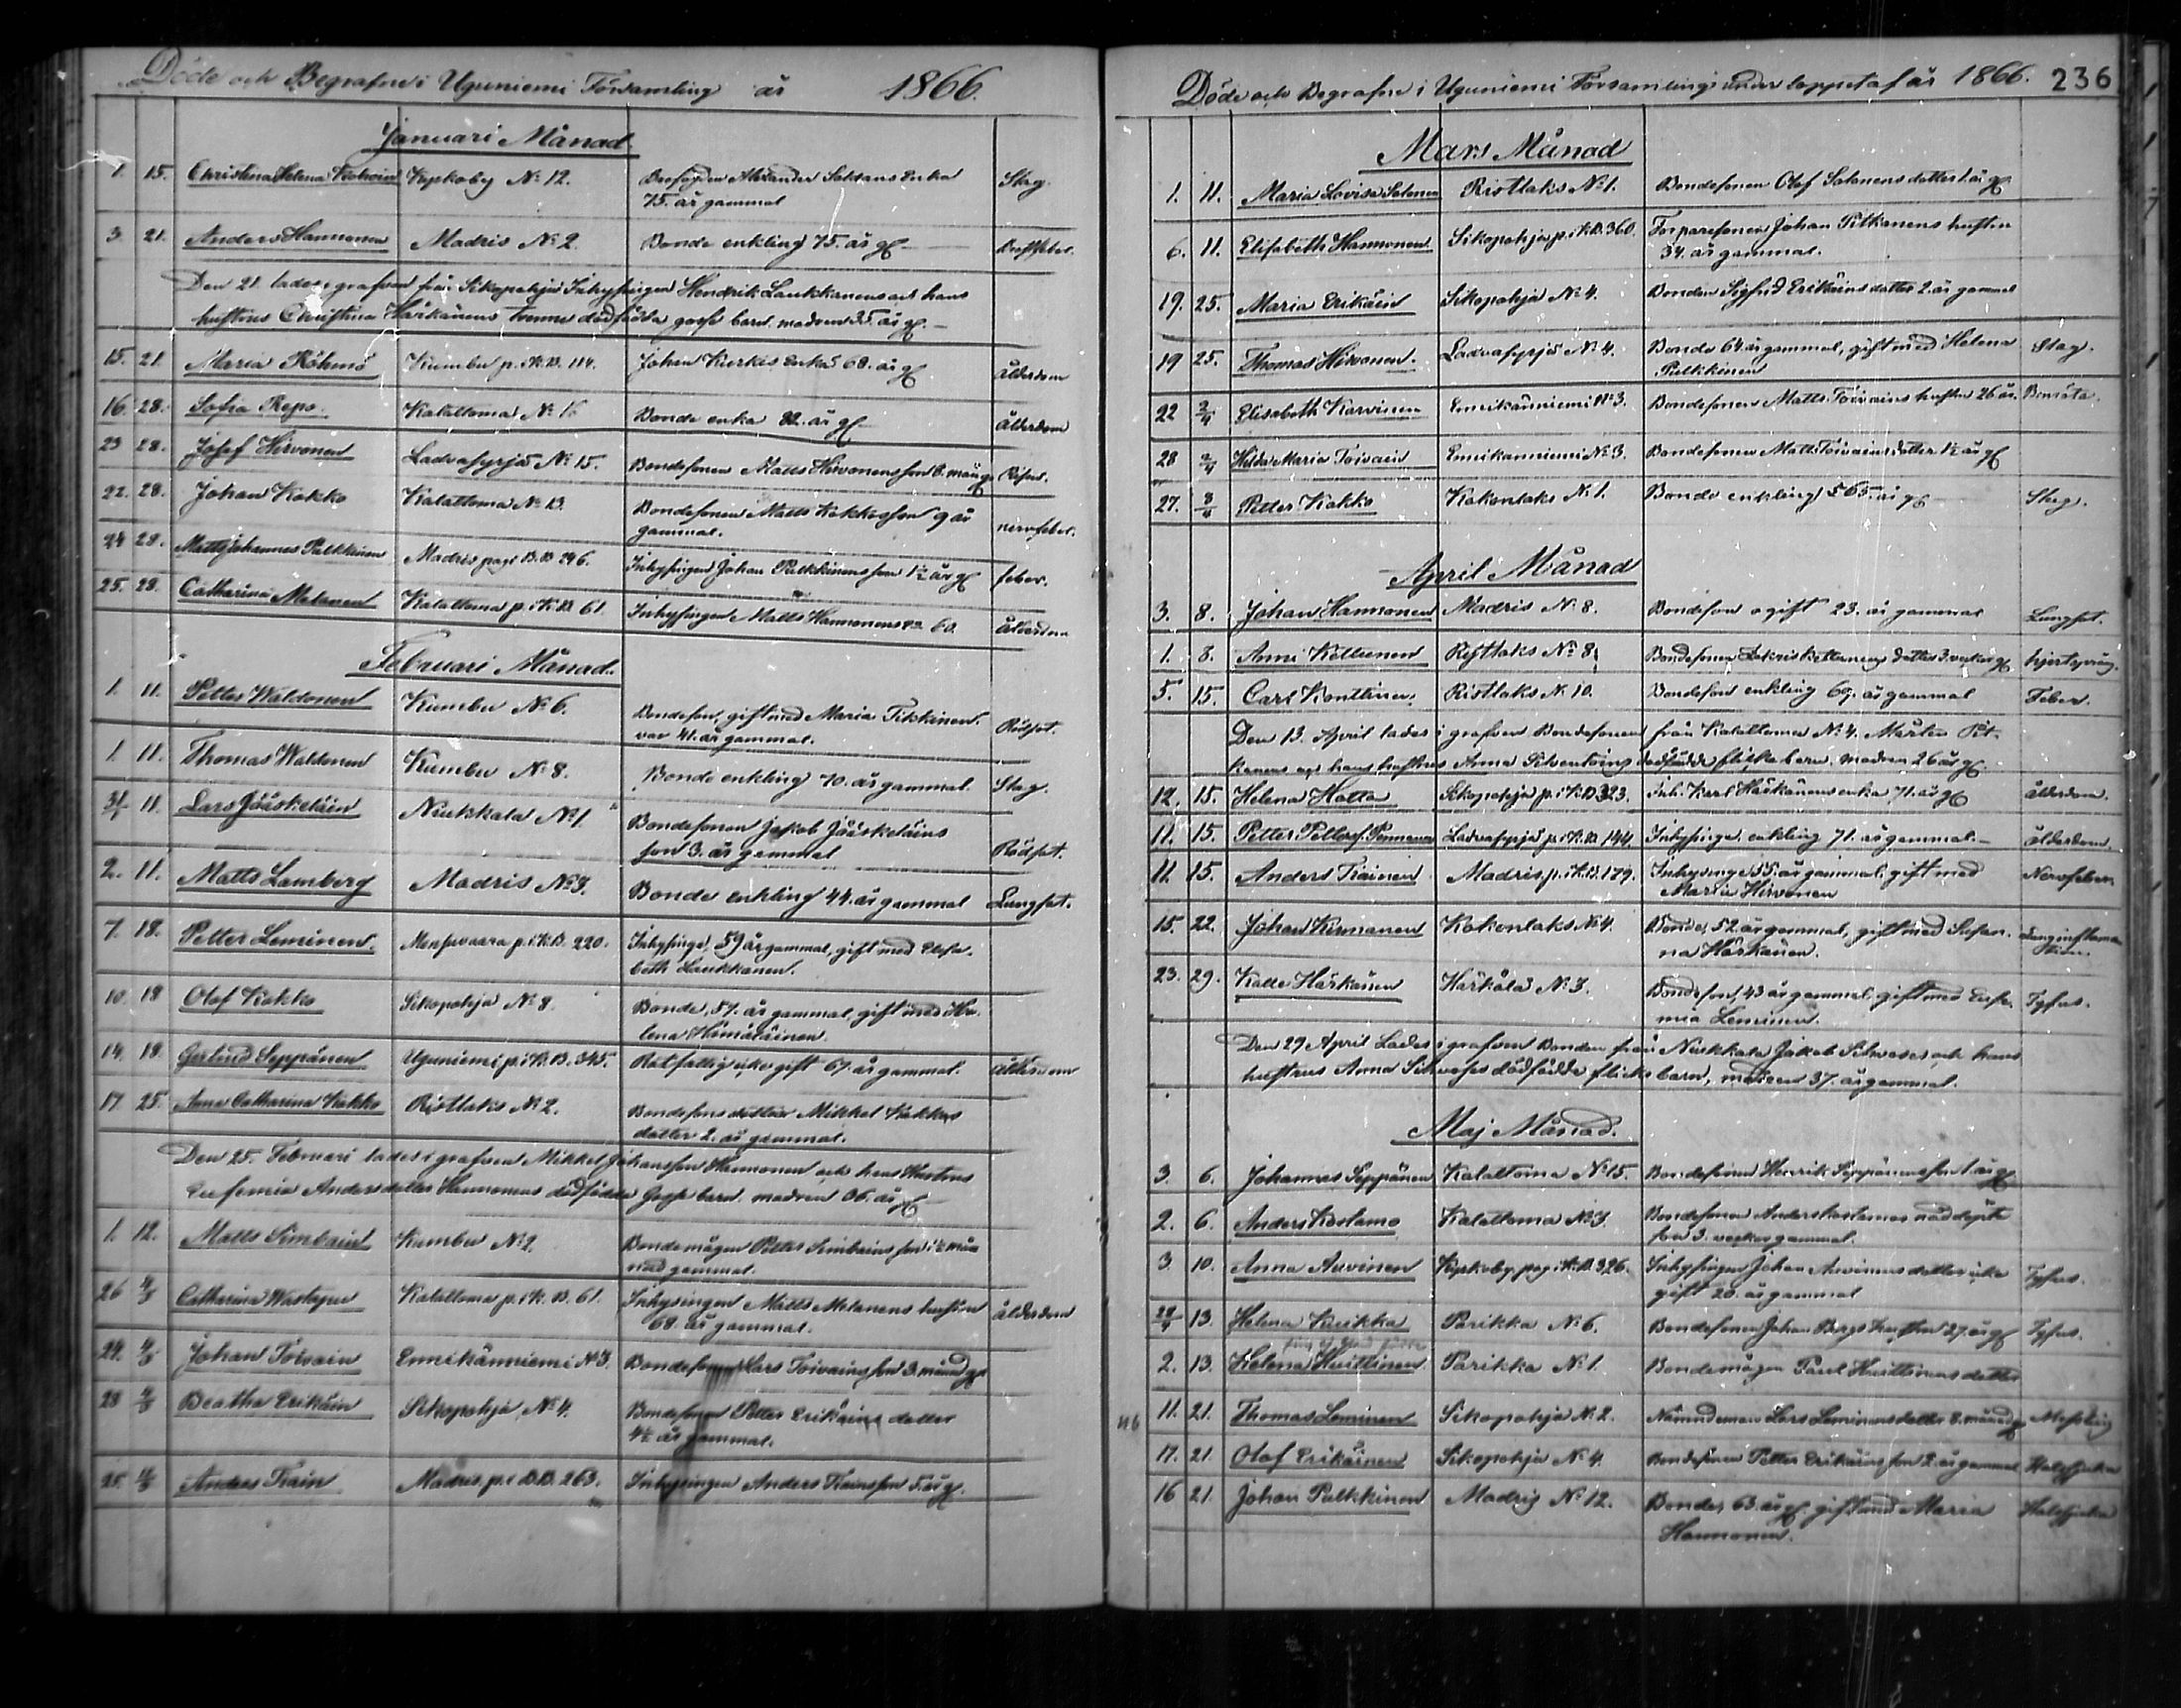 Döde och Begrafne i Uguniemi Församling år 1866.
Januari Månad.
1. 15. Christina Helena Kyrkoby No 12. Alexander Enka Slag.
75. år gammal
3. 21. Anders Hannonen Madris No 2. Bonde enkling 75. år gl Bröstfeber.
Den 21. lades i grafven från Sikopohja Inhysingen Hendrik Laukkanens och hans
hustrus Christina Härkänens dödfödda gosse barn. modren 35. år gl.
15. 21. Maria Röhmö Kumbu p. i K.B. 114. Johan Kierkis Enka 68. år gl Ålderdom
16. 28. Sofia Repo. Kalattoma No 16 Bonde enka 82. år gl Ålderdom
23 28. Josef Hirvonen Ladvasyrjä No 15. Bondesonen Matts Hirvonens son 8. mån gl
22. 28. Johan Kokko Kalattoma No 13. Bondesonen Matts Kokkos son 9 år nervfeber.
gammal.
24 28. Matts Johannes Pulkkinen Madris pag i B.B 246. Inhysingen Johan Pulkkinens son 1½ år gl feber.
25. 28. Catharina Melanen Kalattoma p. i K.B 61. Inhysingen Matts Hannonens 60. ålderdom
Februari Månad.
1. 11. Petter Waldonen Kumbu No 6. Bondeson, gift med Maria Tikkinen. Rödsot.
var 41. år gammal.
1. 11. Thomas Waldonen Kumbu No 8. Bonde enkling 70. år gammal. Slag.
31/1 11. Lars Jääskeläin Niukkala No 1. Bondesonen Jakob Jääskeläins
son 3. år gammal Rödsot.
2. 11. Matts Lamberg Madris No 3. Bonde enkling 44. år gammal Lungsot.
7. 18. Petter Leminen. Mensuvaara p. i K.B. 220. Inhysinge, 59 år gammal, gift med Elisa-
beth Laukkanen.
10. 18 Olof Kokko Sikopohja No 8. Bonde, 57. år gammal, gift med He-
lena Hämäläinen.
14. 18. Gertrud Seppänen Uguniemi p. i K.B. 345. Rotfattig icke gift 67. år gammal. ålderdom
17. 25. Anna Catharina Kokko Ristlaks No 2. Bondesons dotter Mikkel Kokkos
dotter 2. år gammal.
Den 25. Februari lades i grafven Mikkel Johansson Hannonen och hans Hustrus
Eufemia Andersdotter Hannonens dödfödda Gosse barn. modren 36. år gl
1. 12. Matts Simbain Kumbu No 2. Bondemågen Petter Simbains son 1½ må-
nad gammal.
26 4/3 Catharina Wastapuu Kalattoma p. i K. B. 61. Inhysingen Matts Melanens hustru ålderdom
68. år gammal.
24. 4/3 Johan Toivain Ennikänniemi No 3. Bondesonen Lars Toivains son 3. månad gl
28 4/3 Beatha Erikäin Sikopohja No 4. Bondesonen Petter Erikäins dotter
4½ år gammal.
25. Anders Kain Madris p. i B.B. 263. Inhysingen Anders Kains son 5. år gl.
Döde och Begrafne i Uguniemi Församling under loppet af år 1866. 236
Mars Månad
1. 11. Maria Lovisa Solonen Ristlaks No 1. Bondesonen Olof Solonens dotter 1. år gl
6. 11. Elisabeth Hannonen Sikopohja p. i K.B. 360. Torparesonen Johan Pitkänens hustru
34. år gammal.
19. 25. Maria Erikäin Sikopohja No 4. Bonden Sigfrid Erikäins dotter 2. år gammal
19 25. Thomas Hirvonen. Ladvasyrjä No 4. Bonde 64. år gammal, gift med Helena Slag.
Pulkkinen
22 2/4 Elisabeth Karvinen Ennikänniemi No 3. Bondesonen Matts Toivains hustru 26 år.
28 2/4 Hilda Maria Toivain Ennikänniemi No 3. Bondesonen Matts Toivains dotter 1½ år gl
27. 3/4 Petter Kokko Kokonlaks No 1. Bonde enkling 65. år gl Slag.
April Månad
3. 8. Johan Hannonen Madris No 8. Bondeson ogift 23. år gammal Lungsot.
1. 8. Anni Kettunen Ristlaks No 8. Bondesonen Kettunens dotter 3. veckor gl
5. 15. Carl Konttinen. Ristlaks No 10. Bondeson enkling 69. år gammal Feber.
Den 13. April lades i grafven Bondesonen från Kalattoma No 4. Mårten Pit-
känens och hans hustrus Anna Silventoins dödfödda flicka barn. modren 26 år gl.
12. 15. Helena Hatta Sikopohja p. i K.B 323. Inh. Karl Härkänens enka 71. år gl ålderdom.
11. 15. Petter Petterss. Pennanen Ladvasyrjä p. i K.B. 144. Inhysinge, enkling 71. år gammal. ålderdom.
11. 15. Anders Kainen Madris p. i K.B. 179. Inhysinge 55. år gammal, gift med Nervfeber.
Maria Hirvonen
15. 22. Johan Kirmanen Kokonlaks No 4. Bonde, 52. år gammal, gift med Susan- Lunginflama-
na Härkänen. tion.
23. 29. Kalle Härkänen Härkälä No 3. Bondeson, 43 år gammal, gift med Eufe- Tyfus.
mia Leminen.
Den 29 April Lades i grafven Bonden från Niukkala Jakob och hans
hustrus Anna dödfödde flicke barn, modren 37. år gammal.
Maj Månad.
3. 6. Johannes Seppänen Kalattoma No 15. Bondesonen Henrik Seppänens son 1. år gl
2. 6. Anders Kostamo Kalattoma No 3. Bondesonen Anders Kostamos nöddöpte
son 3. veckor gammal.
3. 10. Anna Auvinen Kyrkoby pag. i K.B. 326. Inhysingen Johan Auvinens dotter icke Tyfus.
gift 20. år gammal
28/4 13. Helena Kuikka Parikka No 6. Bondesonen Johan Bergs hustru 27. år gl Tyfus.
2. 13. Helena Huittinen Parikka No 1. Bondemågen Paul Huittinens dotter
11. 21. Thomas Leminen Sikopohja No 2. Nämndeman Lars Leminens dotter 8. månad gl Messling
17. 21. Olof Erikäinen Sikopohja No 4. Bondesonen Petter Erikäins son 2. år gammal Halssjuka
16 21. Johan Pulkkinen Madris No 12. Bonde, 63. år gl gift med Maria Halssjuka
Hannonen.